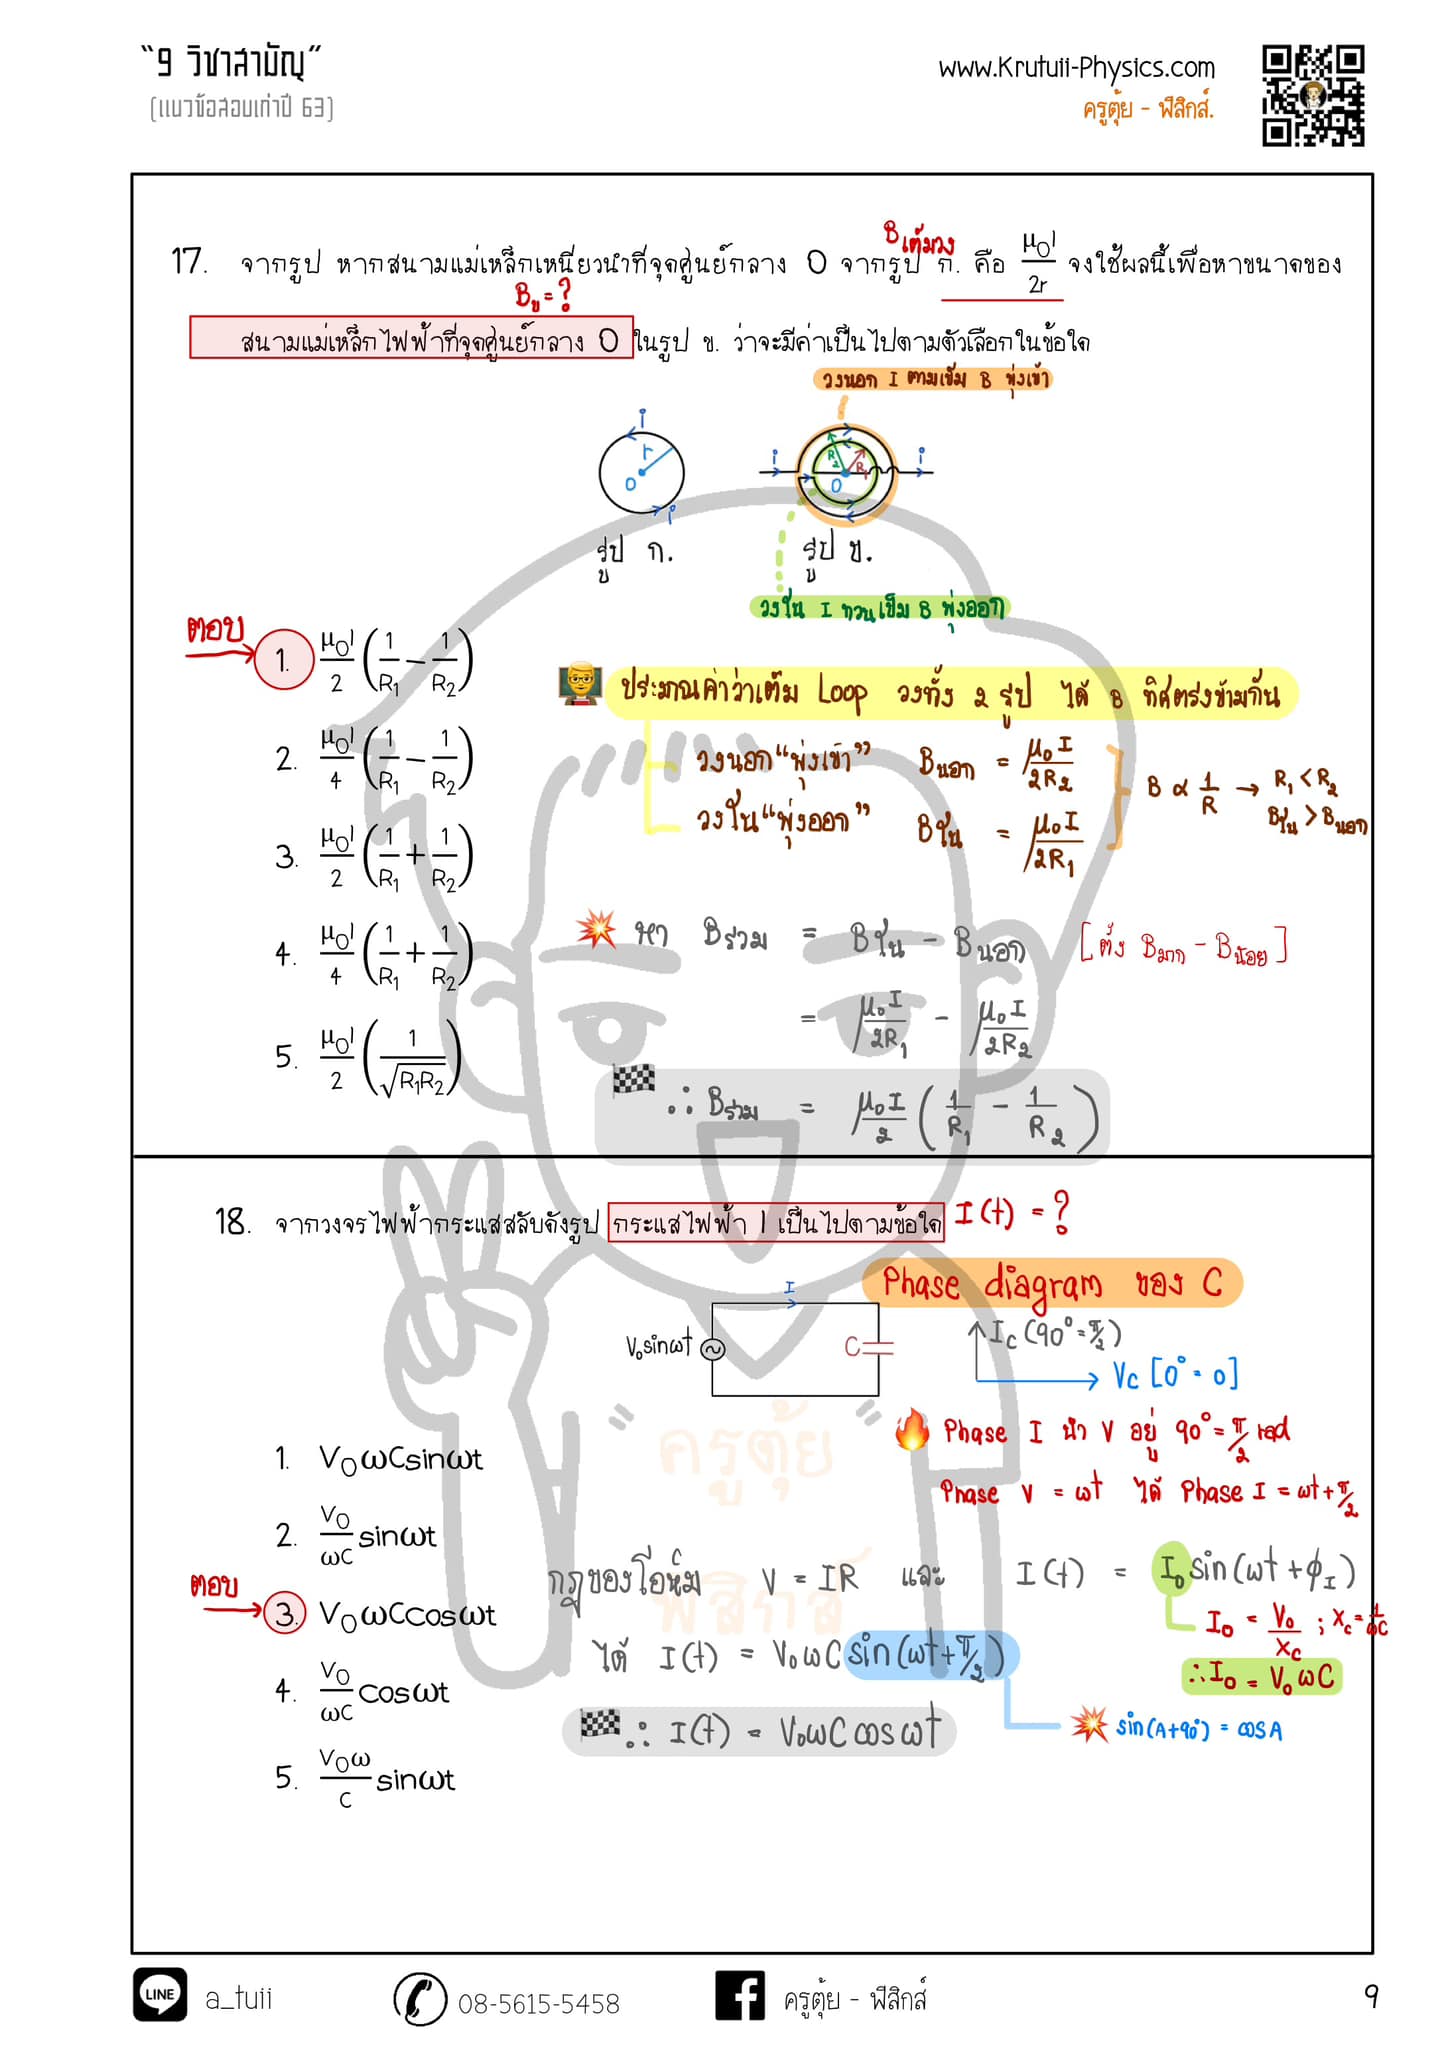 “9 วิชาสามัญ”
(แนวข้อสอบเก่าปี 63)
www.Krutuii-Physics.com
ครูตุ้ย - ฟิสิกส์.
B เต็มวง
17. จากรูป หากสนามแม่เหล็กเหนี่ยวนำที่จุดศูนย์กลาง O จากรูป ก. คือ μ₀I/2r จงใช้ผลนี้เพื่อหาขนาดของ
Bข = ?
สนามแม่เหล็กไฟฟ้าที่จุดศูนย์กลาง O ในรูป ข. ว่าจะมีค่าเป็นไปตามตัวเลือกในข้อใด
วงนอก I ตามเข็ม B พุ่งเข้า
i r O i
i R₂ R₁ O i
รูป ก. รูป ข.
วงใน I ทวนเข็ม B พุ่งออก
ตอบ
1. μ₀I/2 (1/R₁ − 1/R₂)
2. μ₀I/4 (1/R₁ − 1/R₂)
3. μ₀I/2 (1/R₁ + 1/R₂)
4. μ₀I/4 (1/R₁ + 1/R₂)
5. μ₀I/2 (1/√R₁R₂)
ประมาณค่าว่าเต็ม Loop วงทั้ง 2 รูป ได้ B ทิศตรงข้ามกัน
วงนอก “พุ่งเข้า” Bนอก = μ₀I/2R₂
วงใน “พุ่งออก” Bใน = μ₀I/2R₁
B ∝ 1/R → R₁ < R₂
Bใน > Bนอก
หา Bรวม = Bใน − Bนอก [ตั้ง Bมาก − Bน้อย]
= μ₀I/2R₁ − μ₀I/2R₂
∴ Bรวม = μ₀I/2 (1/R₁ − 1/R₂)
18. จากวงจรไฟฟ้ากระแสสลับดังรูป กระแสไฟฟ้า I เป็นไปตามข้อใด I(t) = ?
Phase diagram ของ C
I
V₀sinωt C
I_C (90° = π/2)
V_C [0° = 0]
Phase I นำ V อยู่ 90° = π/2 rad
Phase V = ωt ได้ Phase I = ωt + π/2
1. V₀ωCsinωt
2. V₀/ωC sinωt
ตอบ
3. V₀ωCcosωt
4. V₀/ωC cosωt
5. V₀ω/C sinωt
กฎของโอห์ม V = IR และ I(t) = I₀sin(ωt + φ_I)
I₀ = V₀/X_C ; X_C = 1/ωC
∴ I₀ = V₀ωC
ได้ I(t) = V₀ωC sin(ωt + π/2)
∴ I(t) = V₀ωC cos ωt
sin(A+90°) = cosA
“ครูตุ้ย”
ฟิสิกส์
LINE a_tuii
08-5615-5458
ครูตุ้ย - ฟิสิกส์
9